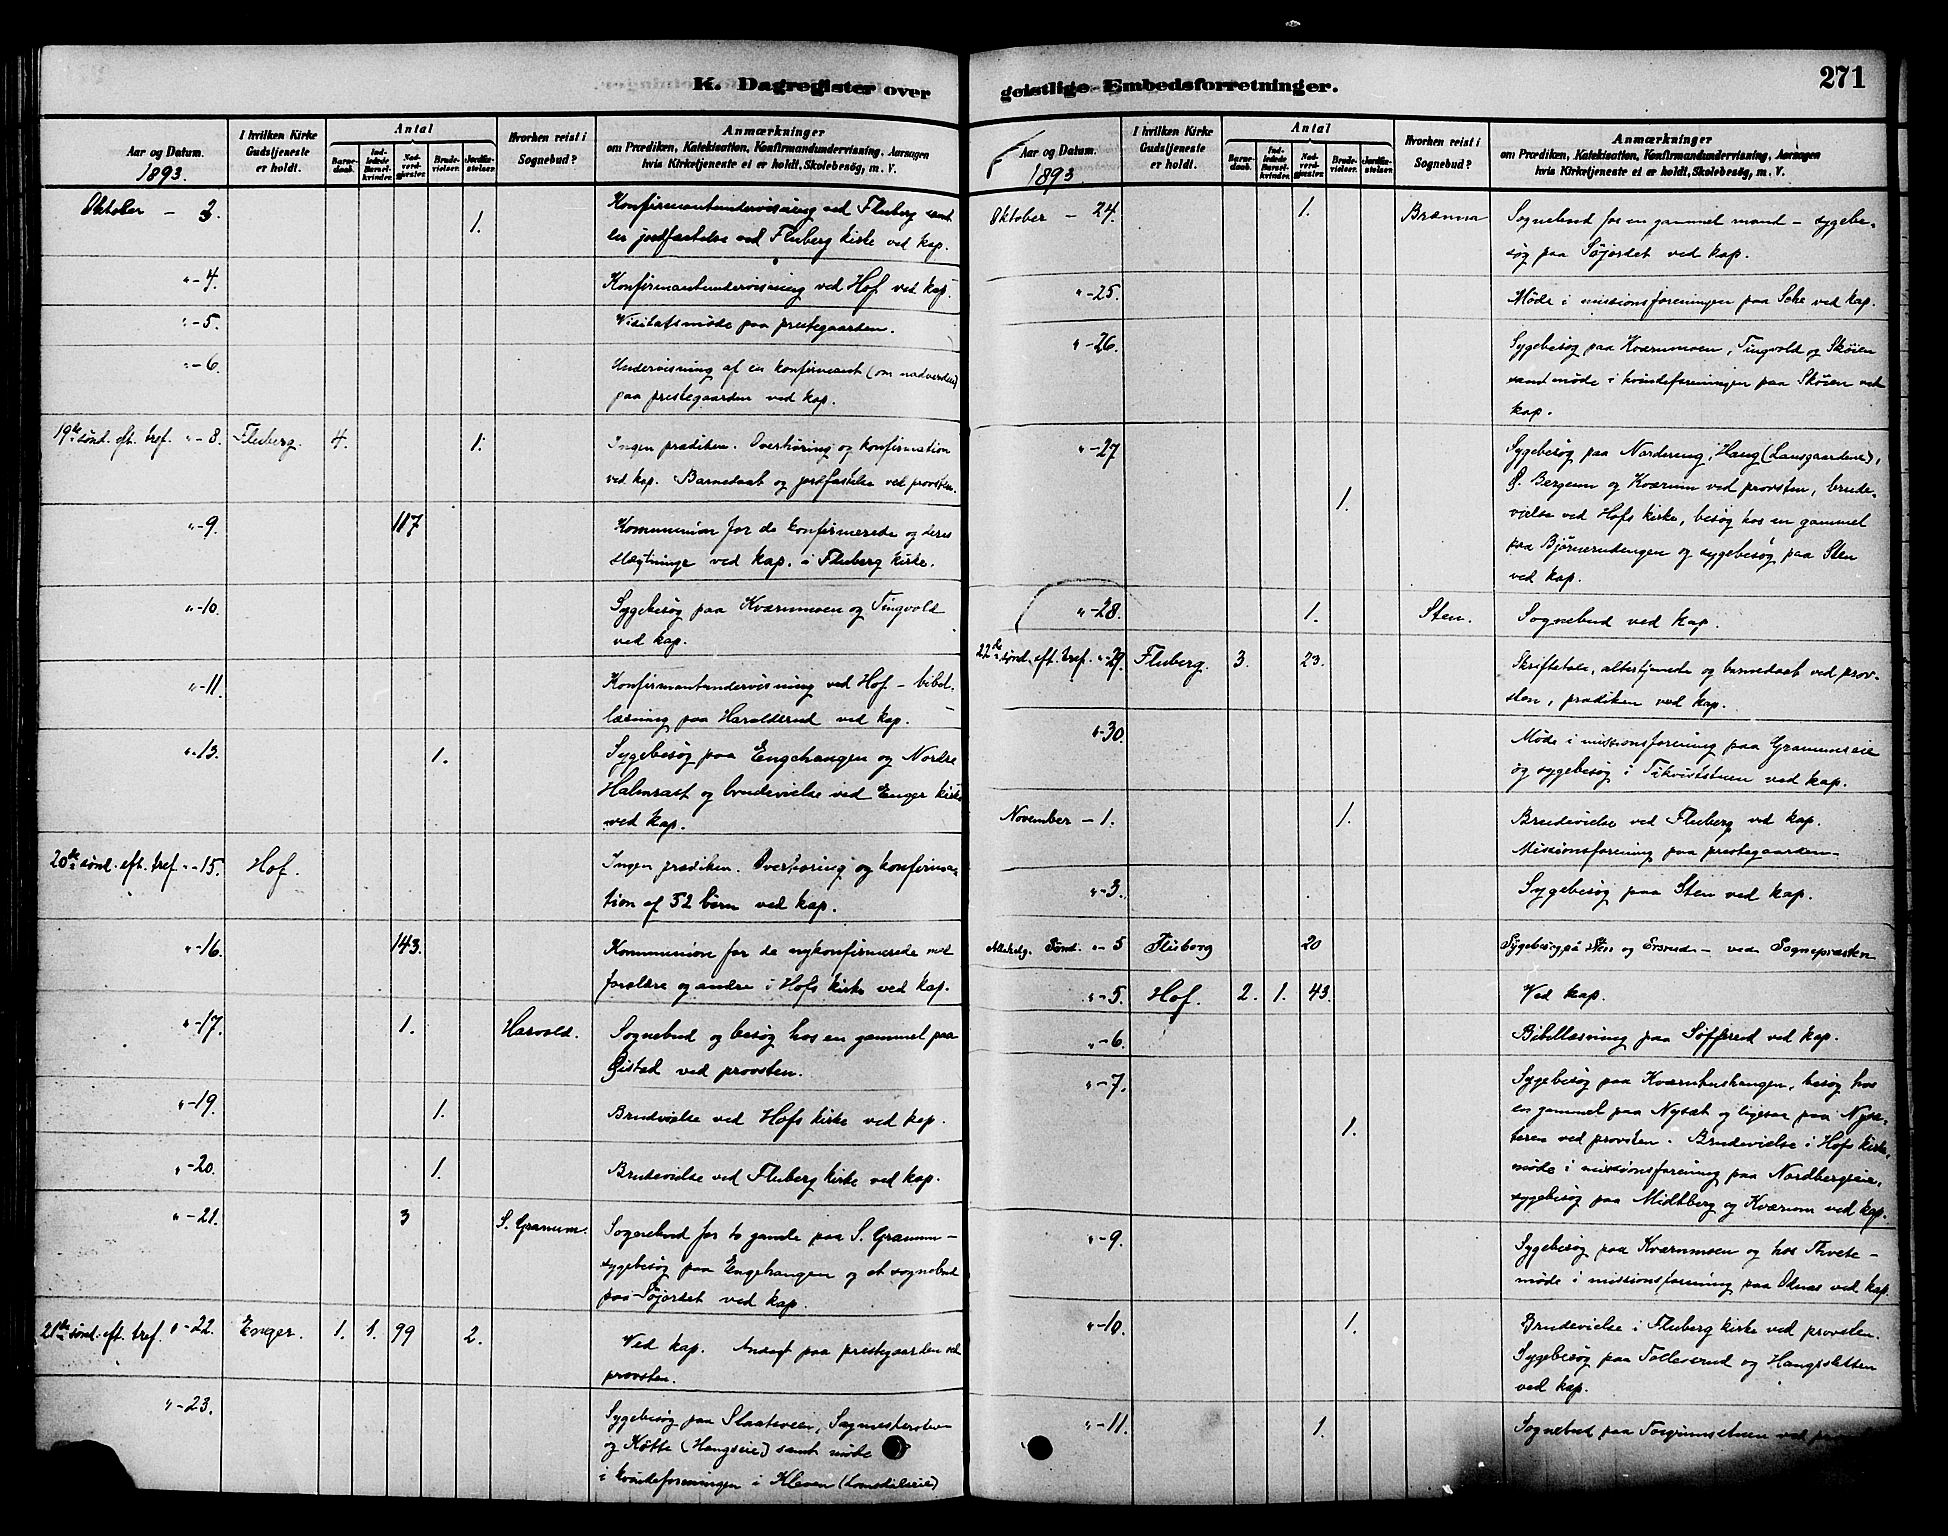 K. Dagregister over geistlige Embedsforretninger.
271
Aar og Datum.
1893.
I hvilken Kirke
Gudstjeneste
er holdt.
Antal
Barne-
daab.
Ind-
ledede
Barsel-
kvinder.
Nad-
verd-
gjester.
Brude-
vielser.
Jordfæ-
stelser.
Hvorhen reist i
Sognebud?
Anmærkninger
om Prædiken, Katekisation, Konfirmandundervisning, Aarsagen
hvis Kirketjeneste ei er holdt, Skolebesøg, m. V.
Oktober - 3. 1. Konfirmantundervisning ved Fluberg samt
jordfæstelse ved Fluberg kirke ved kap.
"-4. Konfirmantundervisning ved Hof ved kap.
"-5. Visitatsmøde paa prestegaarden.
"-6. Undervisning af en konfirmant (om nadverden)
paa prestegaarden ved kap.
19de sønd. eft. tref. "-8. Fluberg. 4. 1. Ingen prædiken. Overhøring og konfirmation
ved kap. Barnedaab og jordfæstelse ved provsten.
"-9. 117 Kommunion for de konfirmerede og deres
slægtninge ved kap. i Fluberg kirke.
"-10. Sygebesøg paa Kværnmoen og Tingvold
ved kap.
"-11. Konfirmantundervisning ved Hof - bibel-
læsning paa Haralderud ved kap.
"-13. 1. Sygebesøg paa Engehaugen og Nordre
Halmrast og brudevielse ved Enger kirke
ved kap.
20de sønd. eft. tref. "-15. Hof. Ingen prædiken. Overhøring og konfirma-
tion af 52 børn ved kap.
"-16. 143. Kommunion for de nykonfirmerede med
forældre og andre i Hofs kirke ved kap.
"-17. 1. Harvold. Sognebud og besøg hos en gammel paa
Øistad ved provsten.
"-19. 1. Brudevielse ved Hofs kirke ved kap.
"-20. 1. Brudevielse ved Fluberg kirke ved kap.
"-21. 3 S. Granum. Sognebud for to gamle paa S. Granum -
sygebesøg paa Engehaugen og et sognebud
paa Søjordet ved kap.
21de sønd. eft. tref. "-22. Enger. 1. 1. 99 2. Ved kap. Andagt paa prestegaarden ved
provsten.
"-23. Sygebesøg paa Slaatsveen,
og Køtte (Haugseie) samt møde
i kvindeforeningen i Kleven
Aar og Datum.
1893
I hvilken Kirke
Gudstjeneste
er holdt.
Antal
Barne-
daab.
Ind-
ledede
Barsel-
kvinder.
Nad-
verd-
gjester.
Brude-
vielser.
Jordfæ-
stelser.
Hvorhen reist i
Sognebud?
Anmærkninger
om Prædiken, Katekisation, Konfirmandundervisning, Aarsagen
hvis Kirketjeneste ei er holdt, Skolebesøg, m. V.
Oktober - 24. 1. Brænna Sognebud for en gammel mand - sygebe-
søg paa Søjordet ved kap.
"-25. Møde i missionsforeningen paa Sche ved kap.
"-26. Sygebesøg paa Kværnmoen, Tingvold og Skøien
samt møde i kvindeforeningen paa Skøien ved
kap.
"-27 Sygebesøg paa Nordereng, Haug (Lansgaardene),
Ø. Bergum og Kværum ved provsten, brude-
1.
vielse ved Hofs kirke, besøg hos en gammel
paa Bjørnerudengen og sygebesøg paa Sten
ved kap.
"-28. 1. Sten. Sognebud ved kap.
22de sønd. eft. tref. "-29. Fluberg. 3. 23. Skriftetale, altertjeneste og barnedaab ved prov-
sten, prædiken ved kap.
"-30. Møde i missionsforening paa Granumseie
og sygebesøg i Tikviststuen ved kap.
November - 1. 1. Brudevielse ved Fluberg ved kap.
Missionsforening paa prestegaarden -
"-3. Sygebesøg paa Sten ved kap.
Allehelg. Sønd. "-5 Fluberg 20 Sygebesøg på Sten og Ersrud - ved Sognepræsten
"-5. Hof. 2. 1. 43. Ved kap.
"-6. Bibellæsning paa Søfferud ved kap.
"-7. Sygebesøg paa Kværnhushaugen, besøg hos
en gammel paa Nysæt og ligesaa paa Nysæ-
teren ved provsten. Brudevielse i Hofs kirke,
1.
møde i missionsforening paa Nordbergseie,
sygebesøg paa Midtberg og Kværum ved kap.
"-9. Sygebesøg paa Kværnmoen og hos Thvete -
møde i missionsforening paa Odnæs ved kap.
"-10. 1. Brudevielse i Fluberg kirke ved provsten.
Sygebesøg paa Tolleserud og Haugsletten
ved kap.
"-11. 1. Sognebud paa Torgrimstuen ved